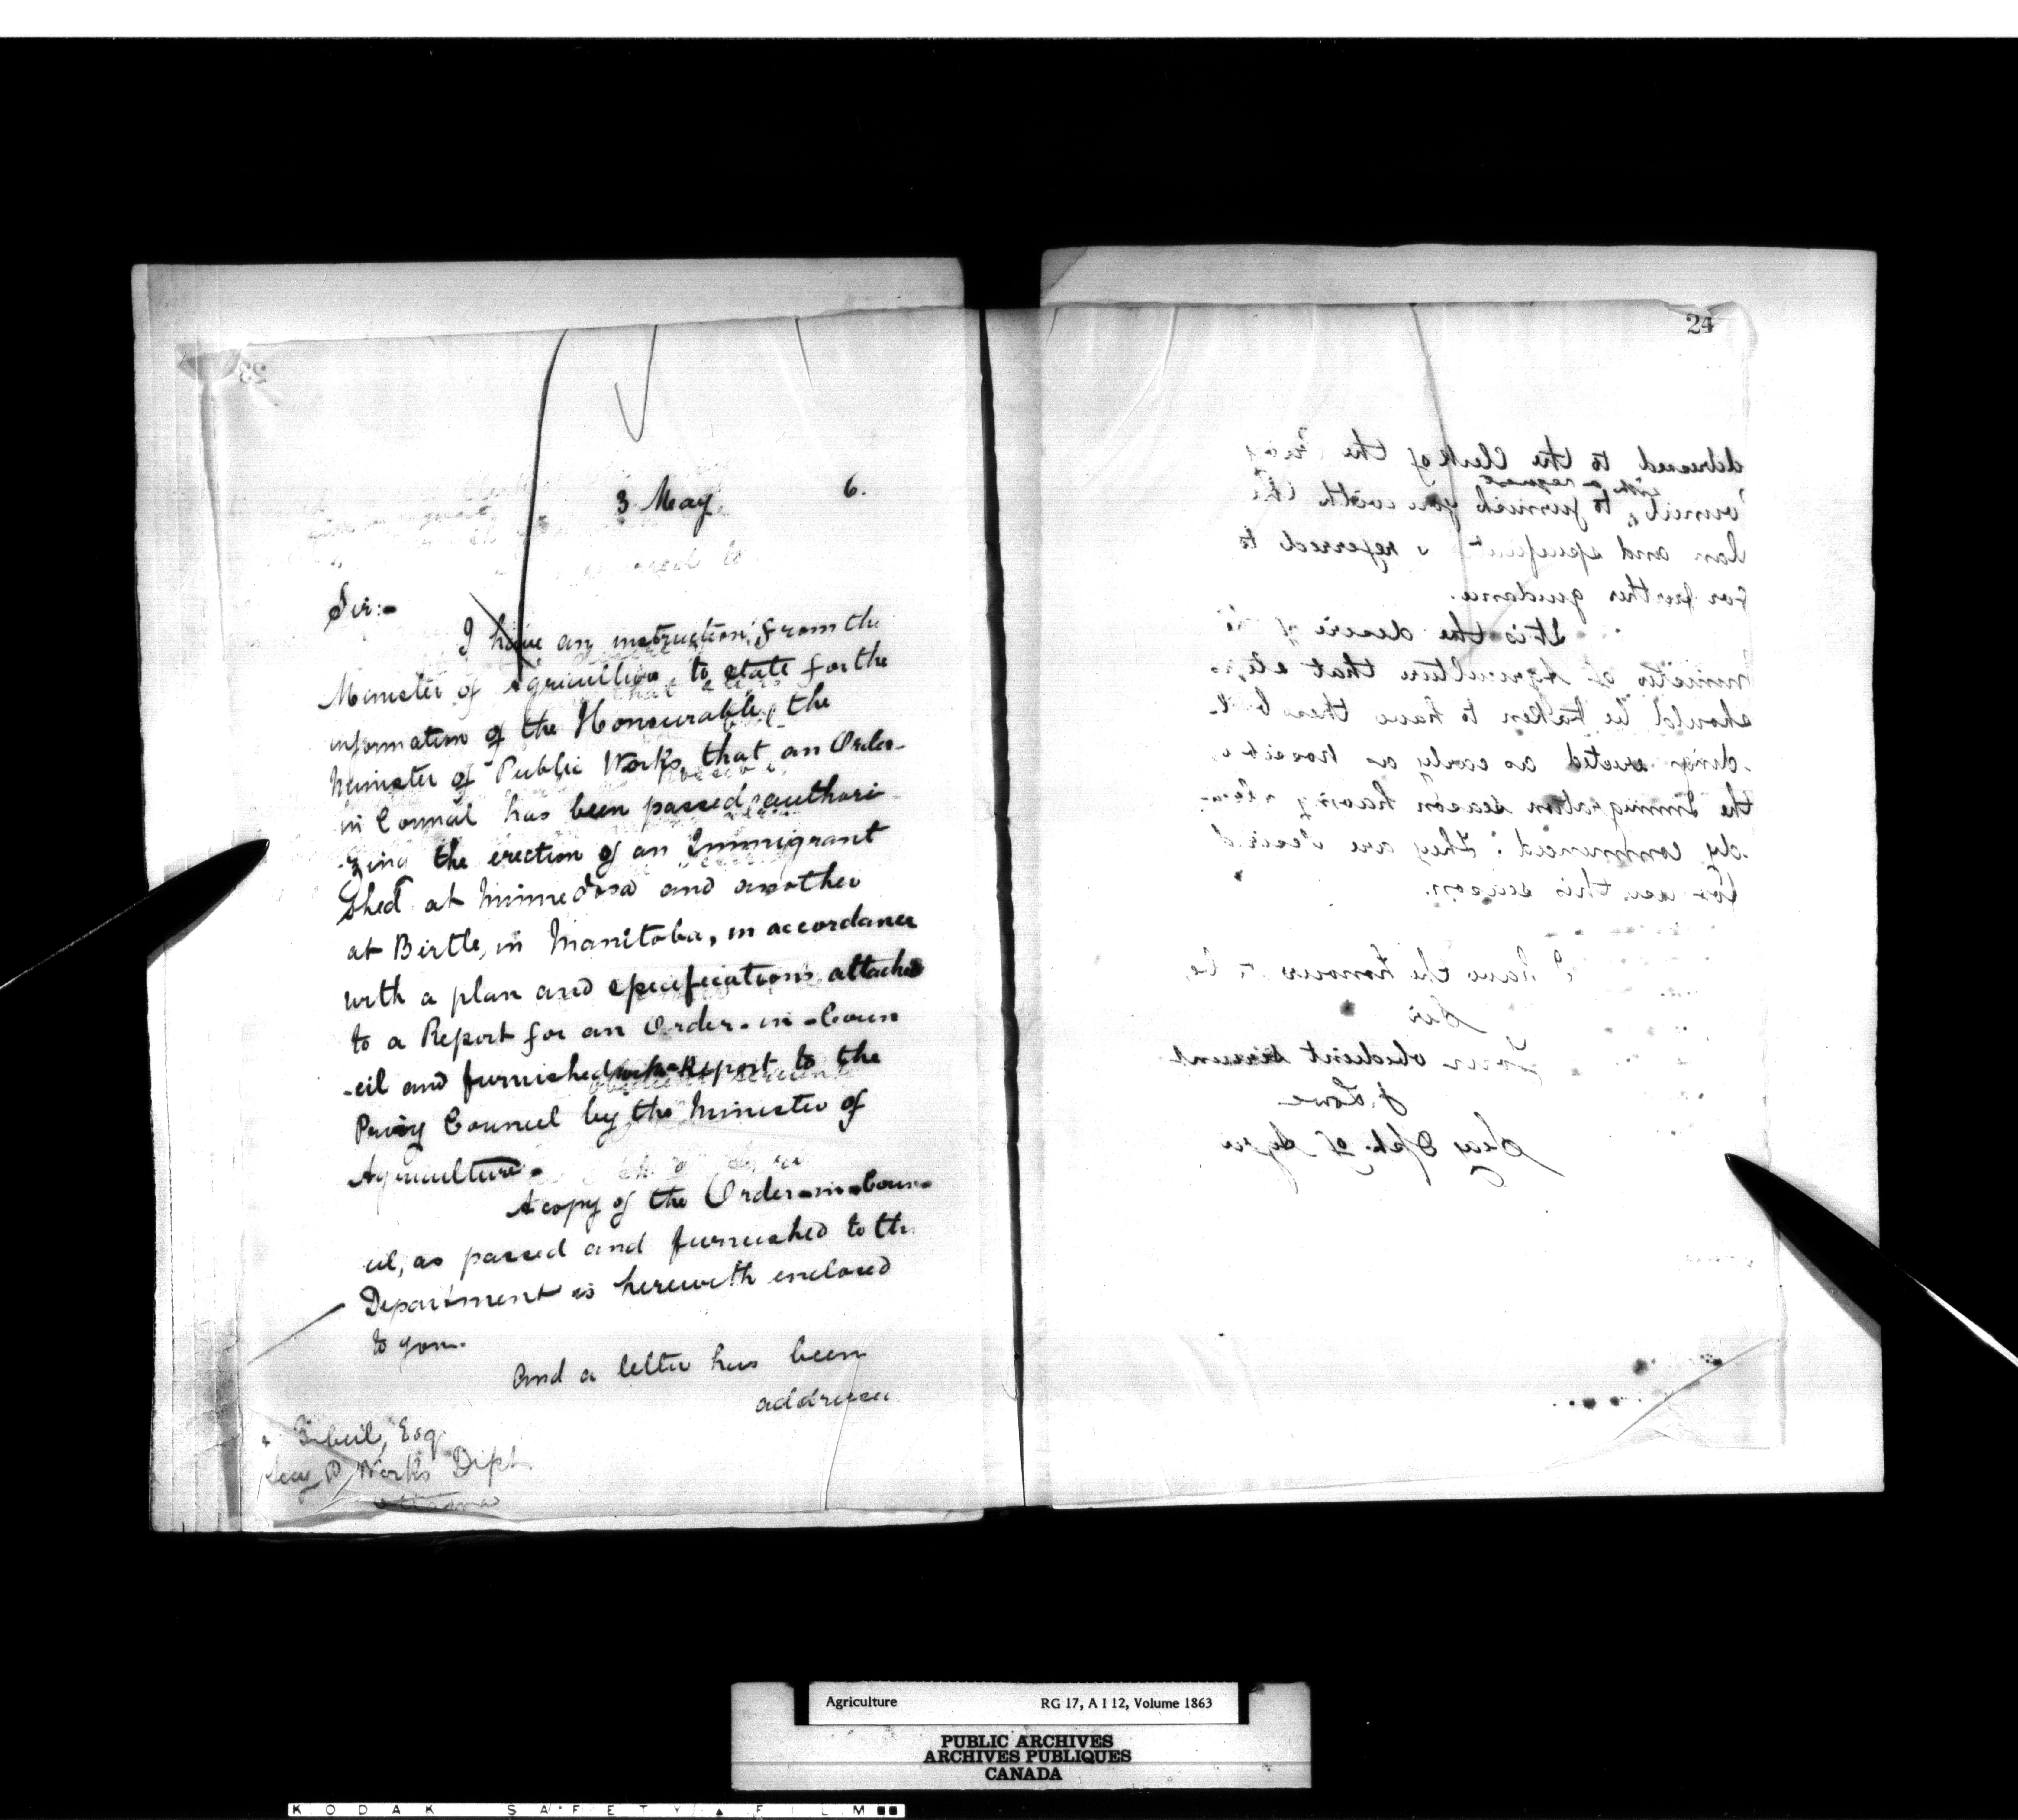 23
3 May 6.
Sir:-
I have an instruction from the
Minister of Agriculture, to state for the
information of the Honourable, the
Minister of Public Works, that an Order-
in Council has been passed, authori
-zing the erection of an Immigrant
Shed at Minnedosa and another
at Birtle, in Manitoba, in accordance
with a plan and specifications attached
to a Report for an Order-in-Coun
-cil and furnished with Report to the
Privy Council by the Minister of
Agriculture.
A copy of the Order-in-Coun-
cil, as passed and furnished to the
Department is herewith enclosed
to you.
And a letter has been
addresse
Esq
Secy P Works Dept.
Ottawa
24
ddressed to the Clerk of the Privy
ouncil, with a request
to furnish you with the
lan and specificat s referred to
for further guidance.
It is the desire of the
Minister of Agriculture that steps
should be taken to have these buil
-dings erected as early as possible,
the Immigration season having alrea-
-dy commenced: they are
for use this season.
I have the honour to be,
Sir
Your obedient servant
J. Lowe
Secy Dept. of Agric
Agriculture RG 17, A I 12, Volume 1863
PUBLIC ARCHIVES
ARCHIVES PUBLIQUES
CANADA
KODAK SAFETY FILM